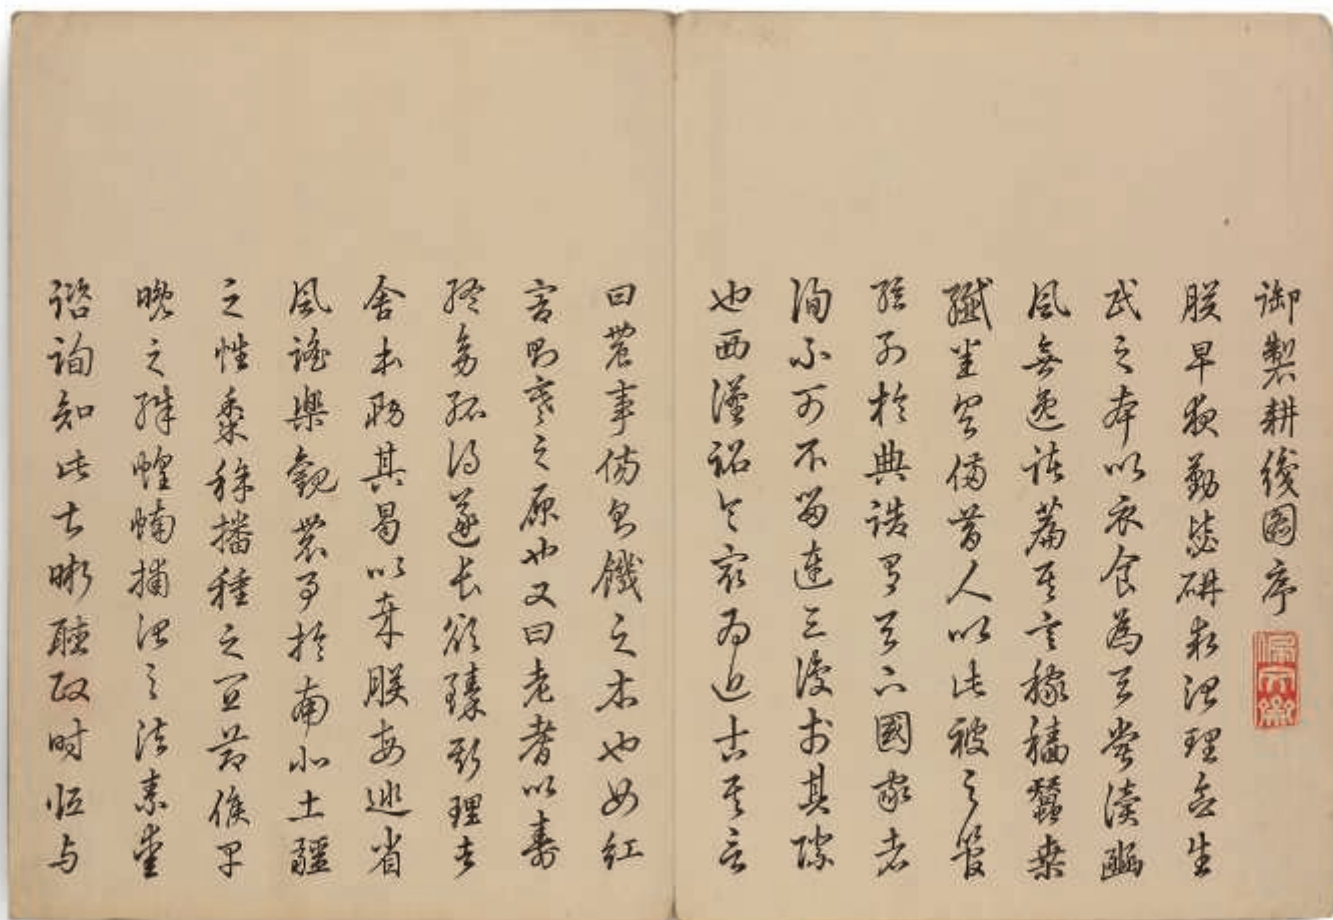 御製耕織圖序
佩文齋
朕早夜勤毖研求治理念生
民之本以衣食為天嘗讀豳
風無逸諸篇其言稼穡蠶桑
纖悉具備昔人以此被之管
絃列於典誥有天下國家者
洵不可不留連三復於其際
也西漢詔令最為近古其言
曰農事傷則饑之本也女紅
害則寒之原也又曰老耆以壽
終幼孤得遂長欲臻斯理者
舍本務其曷以哉朕每巡省
風謠樂觀農事於南北土疆
之性黍稌播種之宜節候早
晚之殊蝗蝻捕治之法素愛
諮詢知此甚晰聽政时恆与